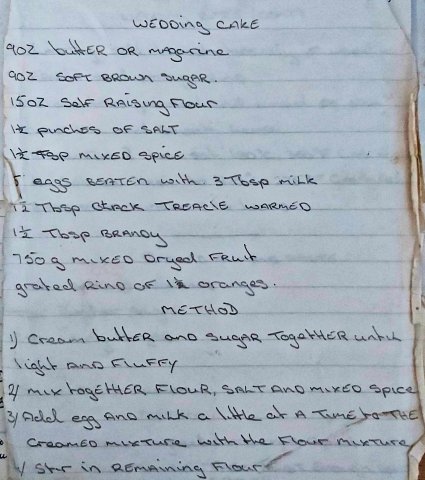 WEDDING CAKE
9OZ butter OR magarine
9OZ SOFT BROWN SUGAR.
15OZ Self RAISING Flour
1½ pinches OF SALT
1½ TSP MIXED SPICE
5 eggs BEATEN with 3 Tbsp milk
1½ Tbsp BLACK TREACLE WARMED
1½ Tbsp BRANDY
750g MIXED Dryed FRUIT
grated RIND OF 1½ oranges.
METHOD
1) CREAM butter AND SUGAR TOGETHER until
light AND FLUFFY
2) mix together FLOUR, SALT AND MIXED SPICE
3) Add egg AND milk a little at A TIME to THE
CREAMED MIXTURE with the Flour MIXTURE
4) Stir in REMAINING Flour